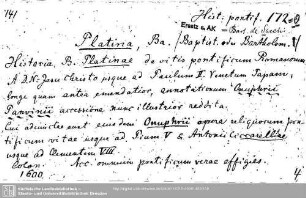 141
Hist. pontif. 172
Ersatz s. AK
Platina, Ba. /Baptist. od. Bartholom./
Historia B. Platinae de vitis pontificum Romanorum
A D.N. Jesu Christo usque ad Paulum II. Venetum Papam,
longe quam antea emendatior, annotationum Onuphrii
Panvinii accessione nunc illustrior reddita.
Cui adiunctus est eiusdem Onuphrii opera reliquorum pon-
tificum vitae usque ad Pium V & Antonii Ciccarellae
usque ad Clementem VIII.
Colon. Acc. omnium pontificum verae effigies.
1600. 4